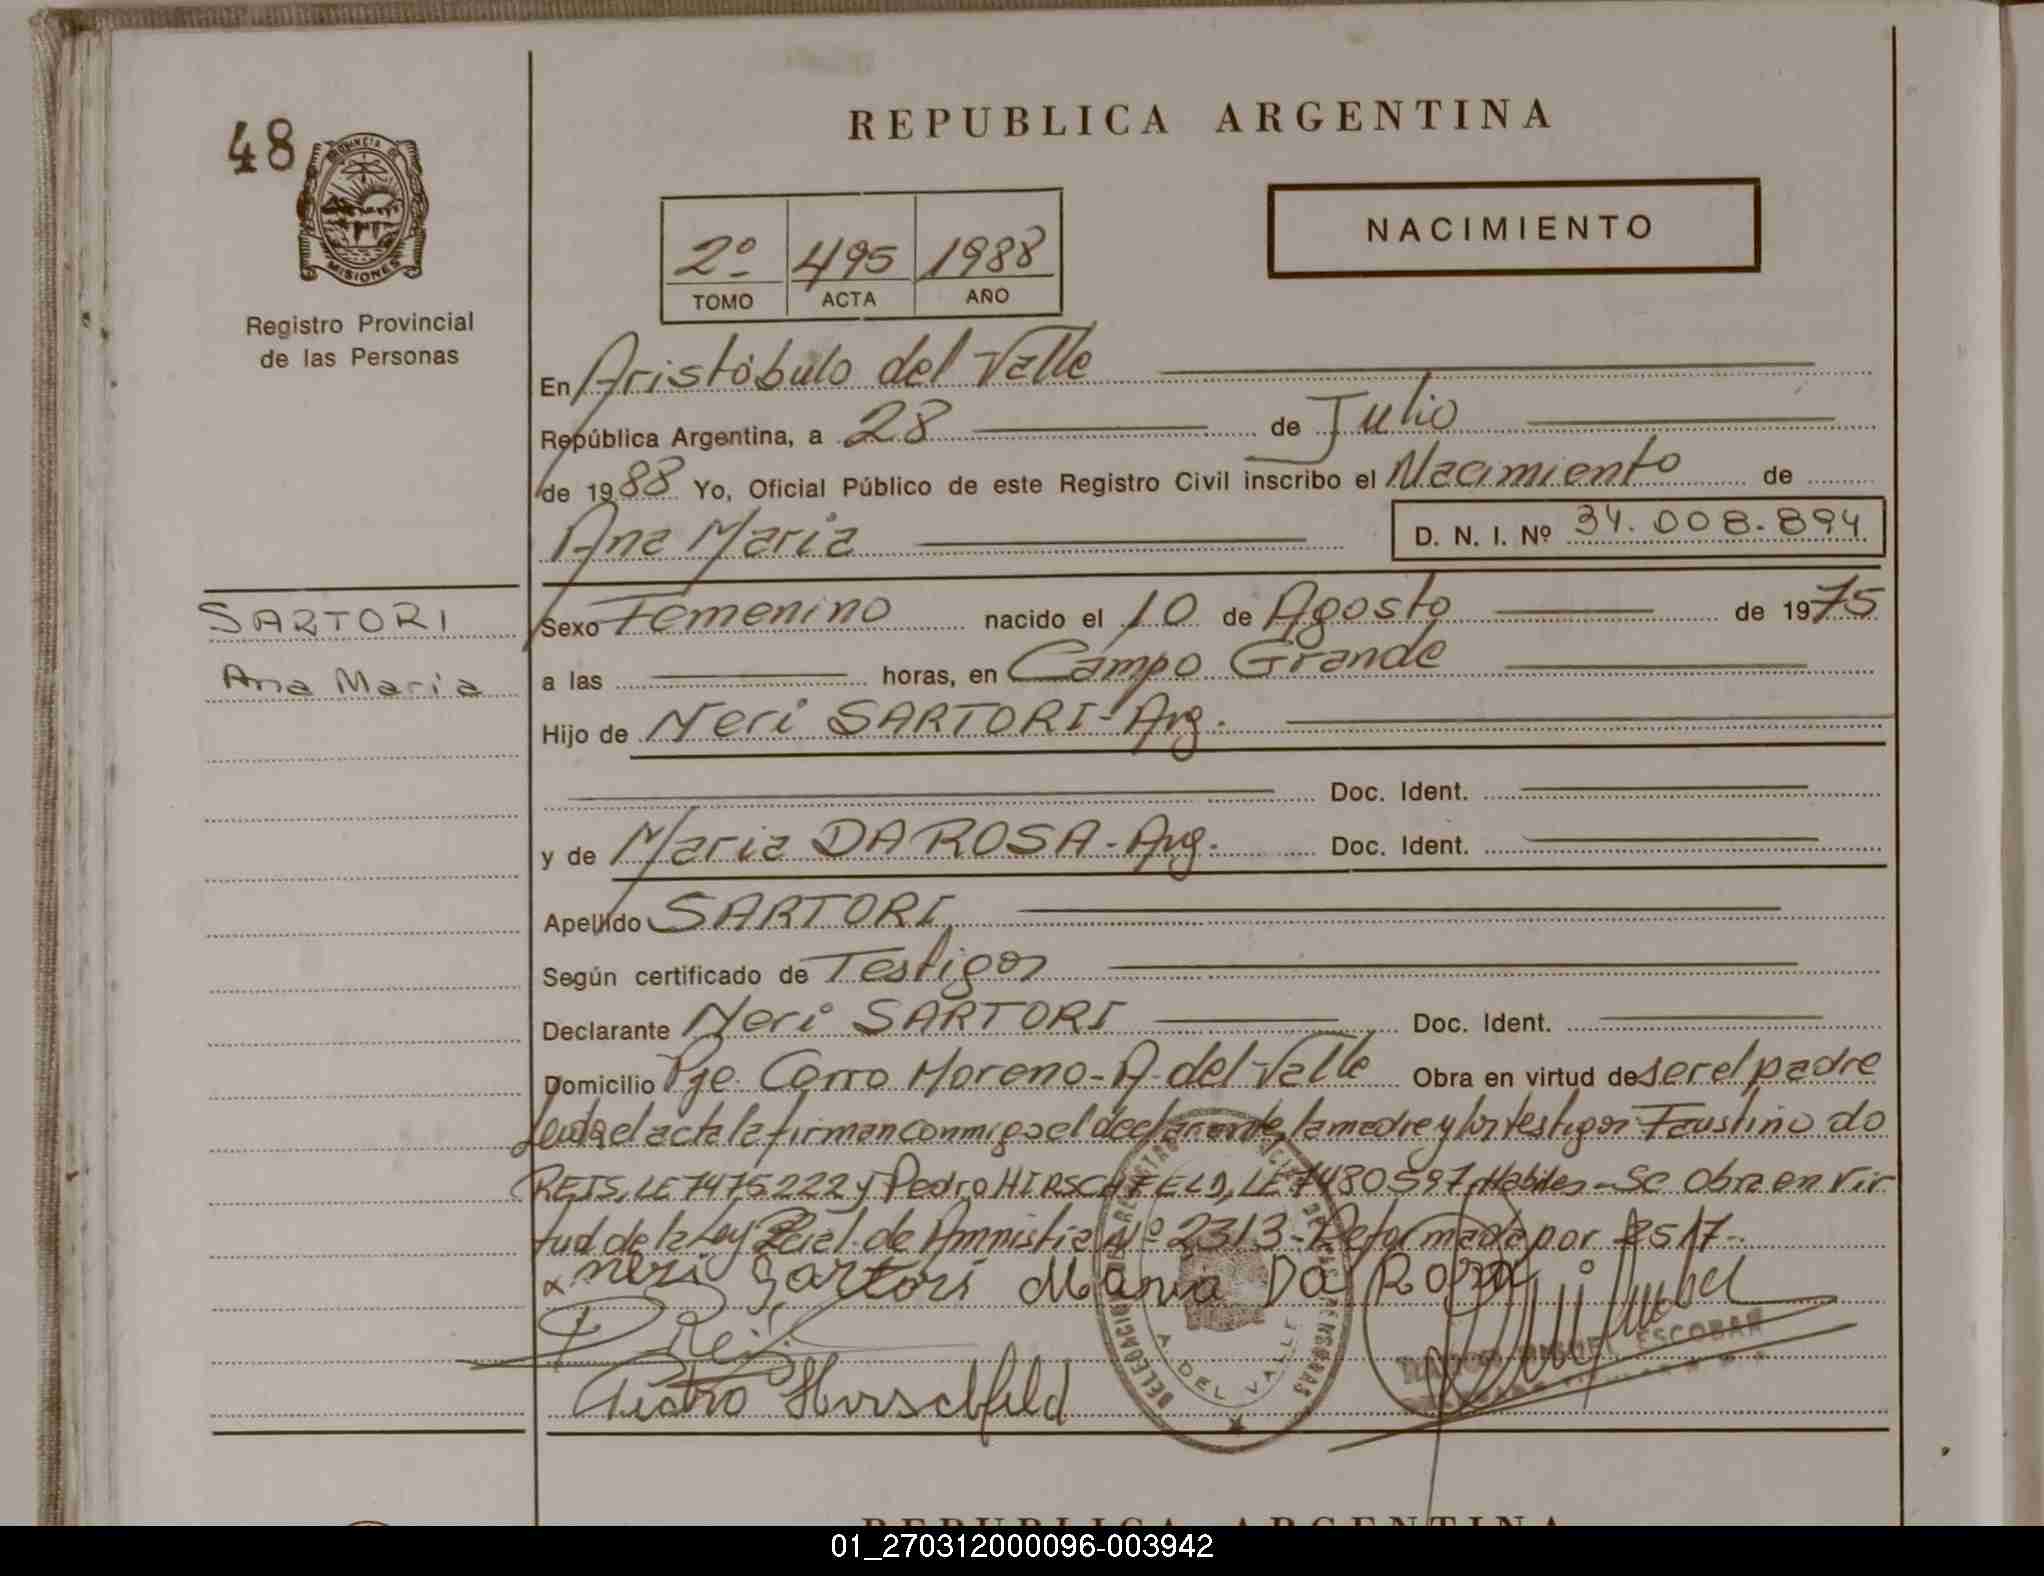 48
PROVINCIA DE
MISIONES
Registro Provincial
de las Personas
REPUBLICA ARGENTINA
NACIMIENTO
2º 495 1988
TOMO ACTA AÑO
En Aristóbulo del Valle
República Argentina, a 28 de Julio
de 1988 Yo, Oficial Público de este Registro Civil inscribo el Nacimiento de
Ana Maria D. N. I. Nº 34.008.894
SARTORI
Ana Maria
Sexo Femenino nacido el 10 de Agosto de 1975
a las horas, en Campo Grande
Hijo de Neri SARTORI-Arg.
Doc. Ident.
y de Maria DA ROSA-Arg. Doc. Ident.
Apellido SARTORI
Según certificado de Testigos
Declarante Neri SARTORI Doc. Ident.
Domicilio Pje. Cerro Moreno-A.del Valle Obra en virtud de ser el padre
Leida el acta la firman conmigo el declarante, la madre y los testigos Faustino do
REIS, LE 7475222 y Pedro HIRSCHFELD, LE 7480597, Habiles-Se Obra en Vir
tud de la Ley Pcial. de Amnistia Nº 2313-Reformada por 2517-
neri Sartori Maria Da Rosa
Reis
Pedro Hirschfeld
A. DEL VALLE
MIGUEL ESCOBAR
REPUBLICA ARGENTINA
01_270312000096-003942